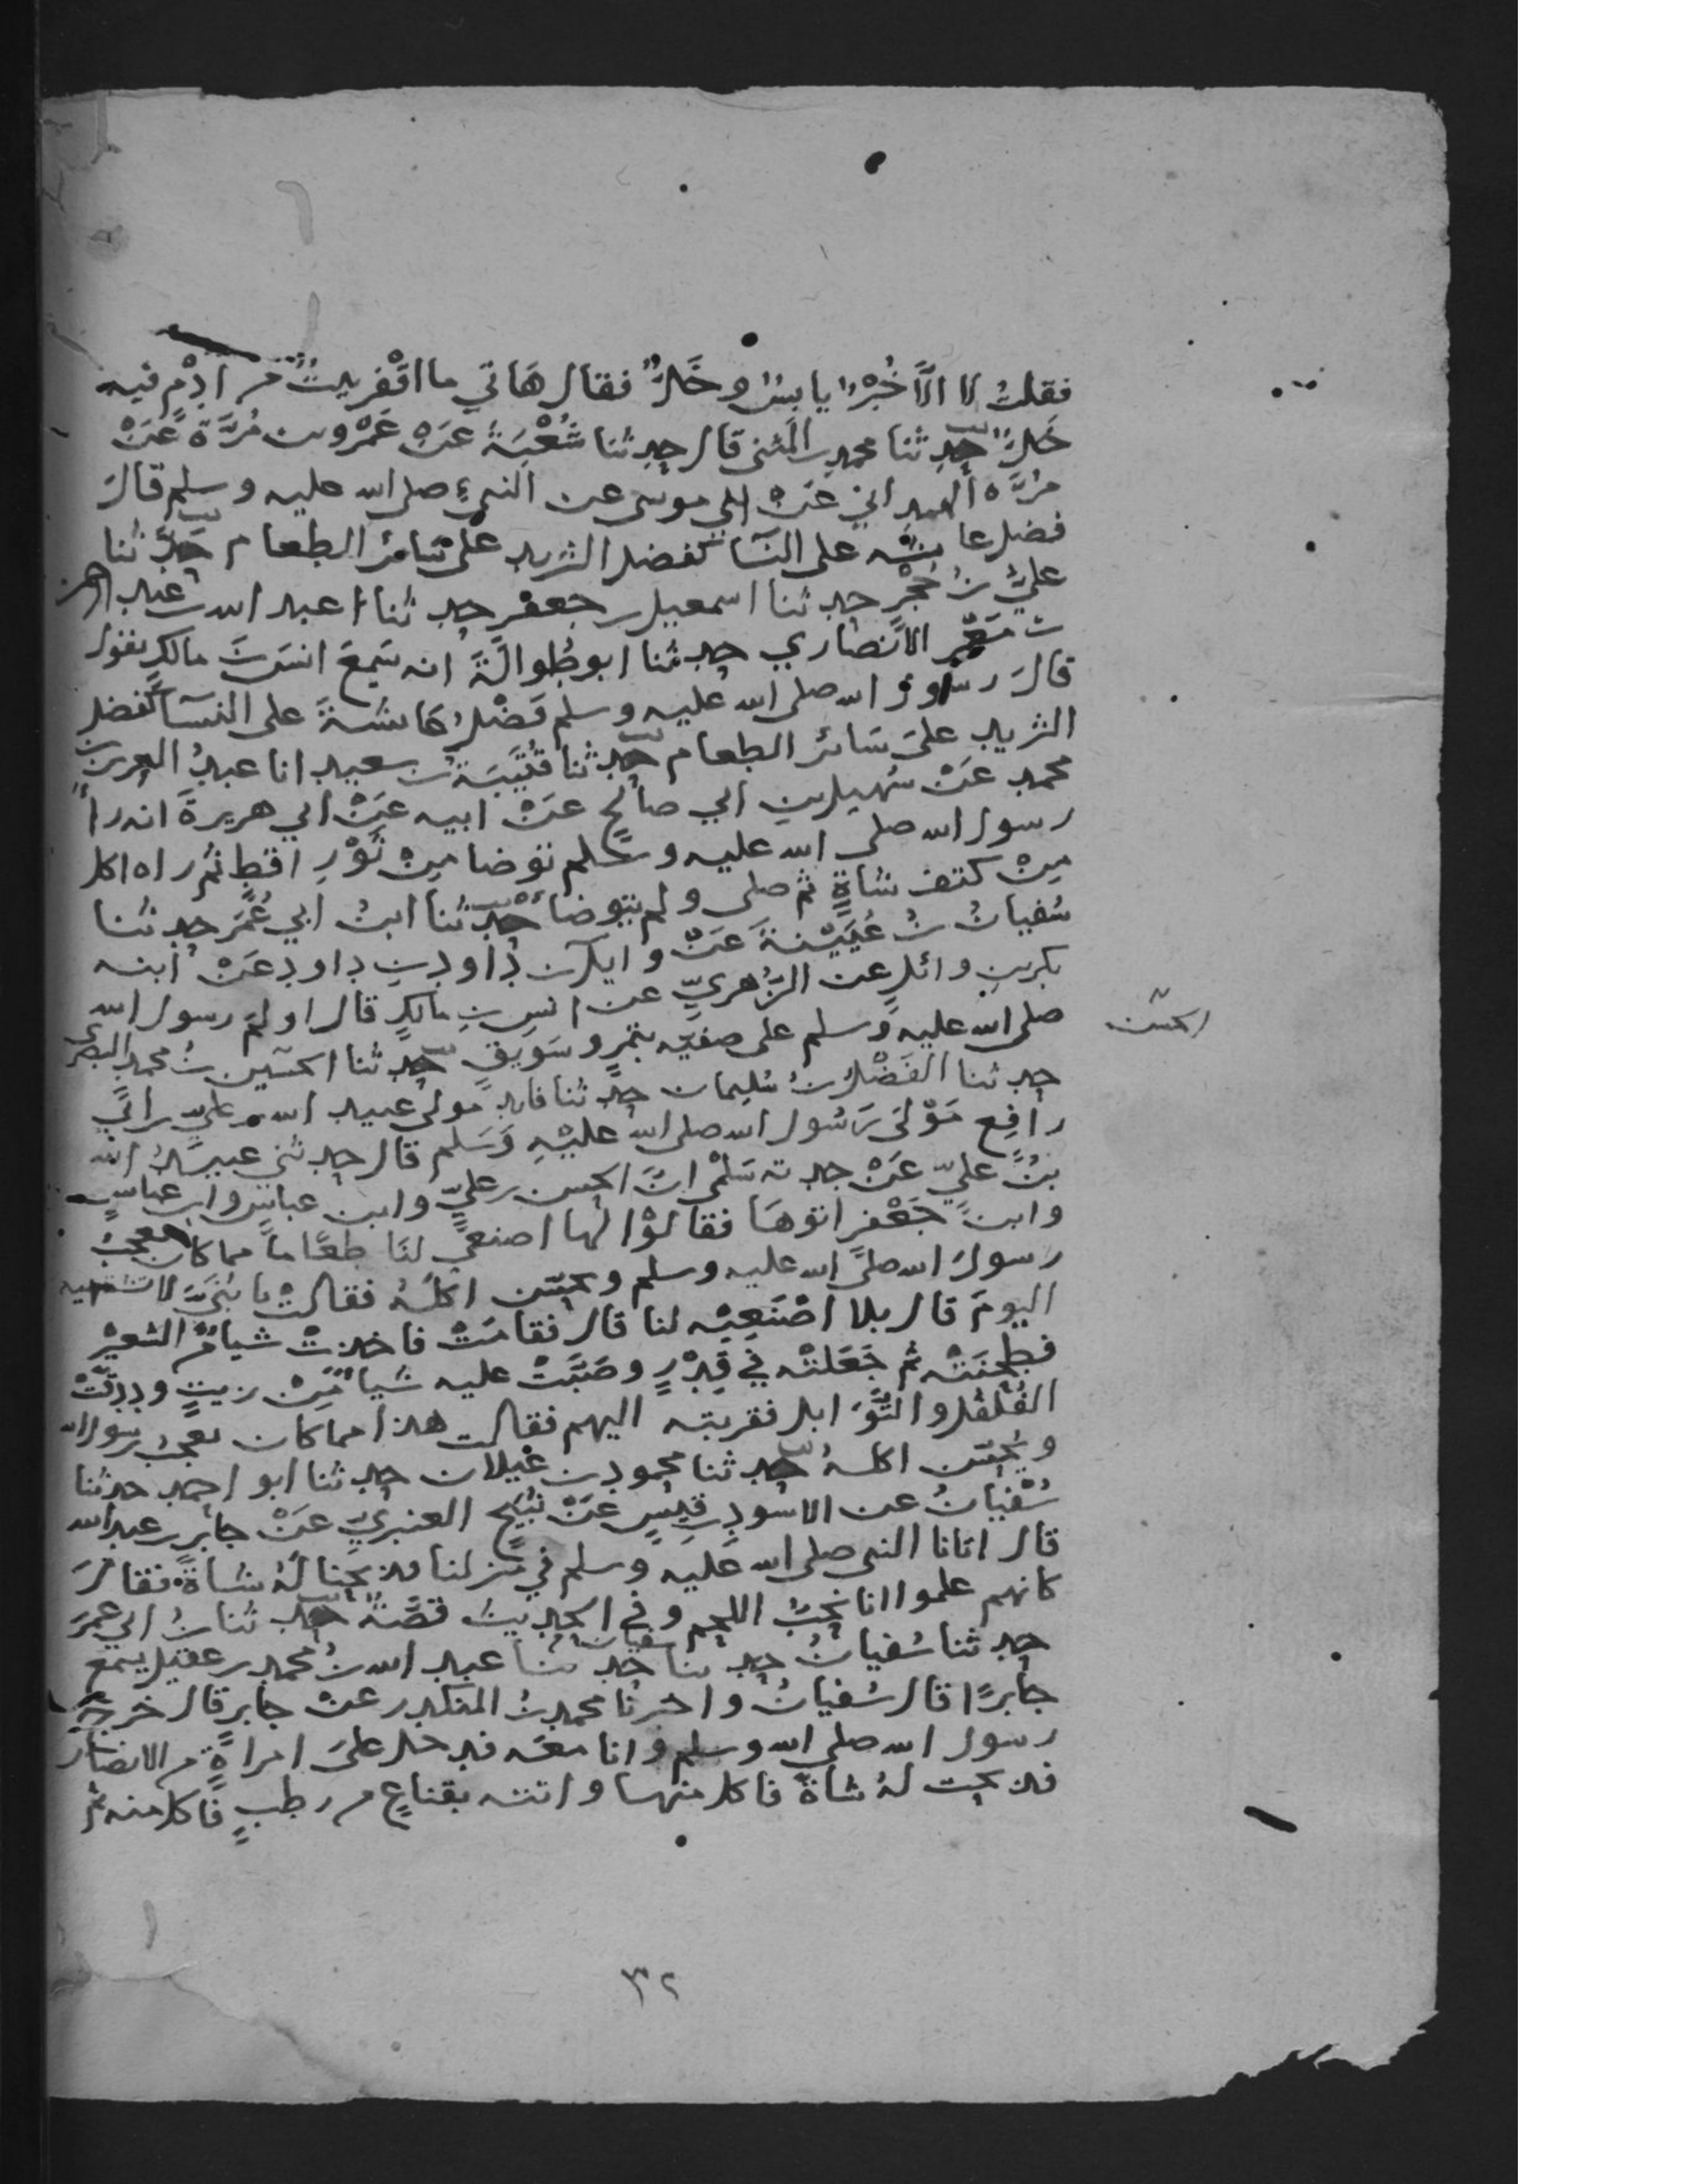 فقلتُ لا الّا خُبْزٌ يابِسٌ وخَلٌّ فقال هَاتي ما اقْفَرَ بيتٌ من اُدْمٍ فيه
خَلٌّ حدثنا محمد بن المثنى قال حدثنا شُعْبَةُ عَنْ عَمْرو بن مُرَّة عَنْ
مُرَّة الهمداني عَنْ ابي موسى عن النبي صلى الله عليه وسلم قالَ
فضل عايشه على النسآ كفضل الثريد على سَائر الطعام حدثنا
عليُّ بنُ حُجْرٍ حدثنا اسمعيل بن جعفر حدثنا عبد الله بن عبد الرحمن
بن مَعْمَر الانصَاري حدثنا ابو طُوالَةَ انه سَمِعَ انسَ بنَ مالكٍ يقول
قالَ رسول الله صلى الله عليه وسلم فَضْلُ عَائشةَ على النسآ كفضل
الثريد على سَائر الطعام حدثنا قُتَيْبَةُ بنُ سعيد انا عبدُ العزيز بن
محمد عَنْ سُهيل بن ابي صالحٍ عَنْ ابيه عَنْ ابي هريرةَ انه رأ
رسول الله صلى الله عليه وسلم توضا مِنْ ثَوْرِ اقطٍ ثم راه اكل
مِنْ كتف شاةٍ ثم صلى ولم يتوضأ حدثنا ابنُ ابي عُمَرَ حدثنا
سُفيانُ بنُ عُيَيْنةَ عَنْ وايل بن داود بن داود عَنْ ابنه
بكر بن وائلٍ عن الزُهريِّ عن انسِ بنِ مالكٍ قال اولمَ رسول الله
صلى الله عليه وسلم على صفيّه بتمرٍ وسَويقٍ حدثنا الحسَين بنُ محمد البصري
الحسن
حدثنا الفَضْلُ بنُ سُليمان حدثنا فايد مولى عبيد الله بن عليّ بن ابي
رافِعٍ مَوْلىَ رَسُول الله صلى الله عليْهِ وَسَلم قال حدثني عبيدُ الله
بنُ عليٍّ عَنْ جدته سَلْمَى انَّ الحسن بن عليٍّ وابن عباسٍ وابن عباسٍ
وابنَ جَعْفر اتوهَا فقالوْا لها اصنعيْ لنَا طعَاماً مما كان يعجبُ
رسولَ الله صلى الله عليه وسلم ويحسّن اكلَهُ فقالتْ يا بُنَيَّ لا تشتهيه
اليومَ قال بلا اصْنَعِيْه لنا قال فقامَتْ فاخذتْ شيا مِّنَ الشعيْر
فطحنَتْه ثم جَعَلتْه في قِدْرٍ وصَبَّتْ عليه شيا مِّنْ زيتٍ ودقَّتْ
الفُلفُل والتَّوَابل فقربته اليهم فقالت هذا مما كان يعجبُ رسول الله
ويُحسّن اكلهُ حدثنا محمود بن غَيلان حدثنا ابو احمد حدثنا
سُفْيانُ عن الاسودِ بن قيسٍ عَنْ نُبَيْحٍ العنبريّ عَنْ جابر بن عبد الله
قال اتانا النبي صلى الله عليه وسلم في منزلنا فذبحنا لهُ شاةً فقالَ
كانهم علموا انا نحبُّ اللحم وفي الحديث قصَّةٌ حدثنا بنُ ابي عُمَرَ
حدثنا سُفيانُ حدثنا سفيان حدثنا عبد الله بنُ محمد بن عقيل يسمع
جابرًا قال سُفيانُ واخبرنا محمد بنُ المنكدر عَنْ جابر قال خرجَ
رسول الله صلى الله وسلم وانا معَه فدخل على امراةٍ من الانصار
فذبحت لهُ شاةً فاكل منها واتته بقناعٍ من رطبٍ فاكل منه ثم
٣٢